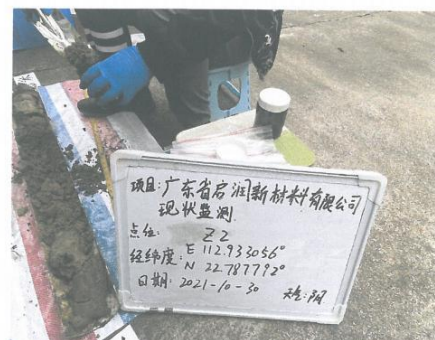 项目: 广东省启润新材料有限公司
现状监测
点位: Z2
经纬度: E 112.933056°
N 22.787792°
日期: 2021-10-30 天气: 阴